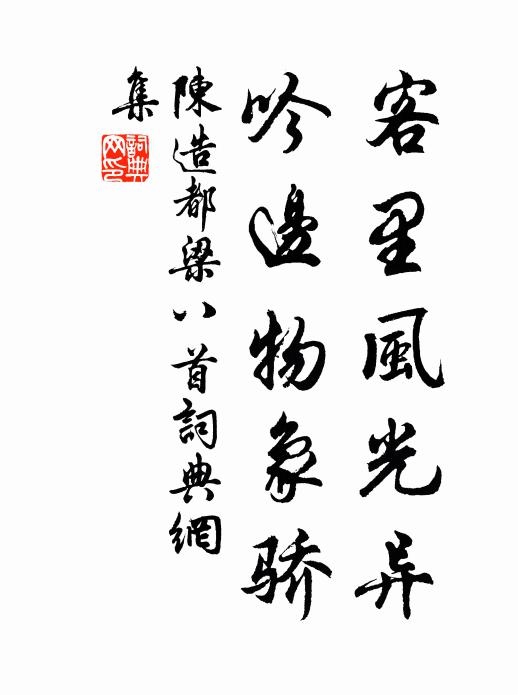 客里風光异
吟邊物象骄
陳造都梁八首詞典網
集
詞典网印